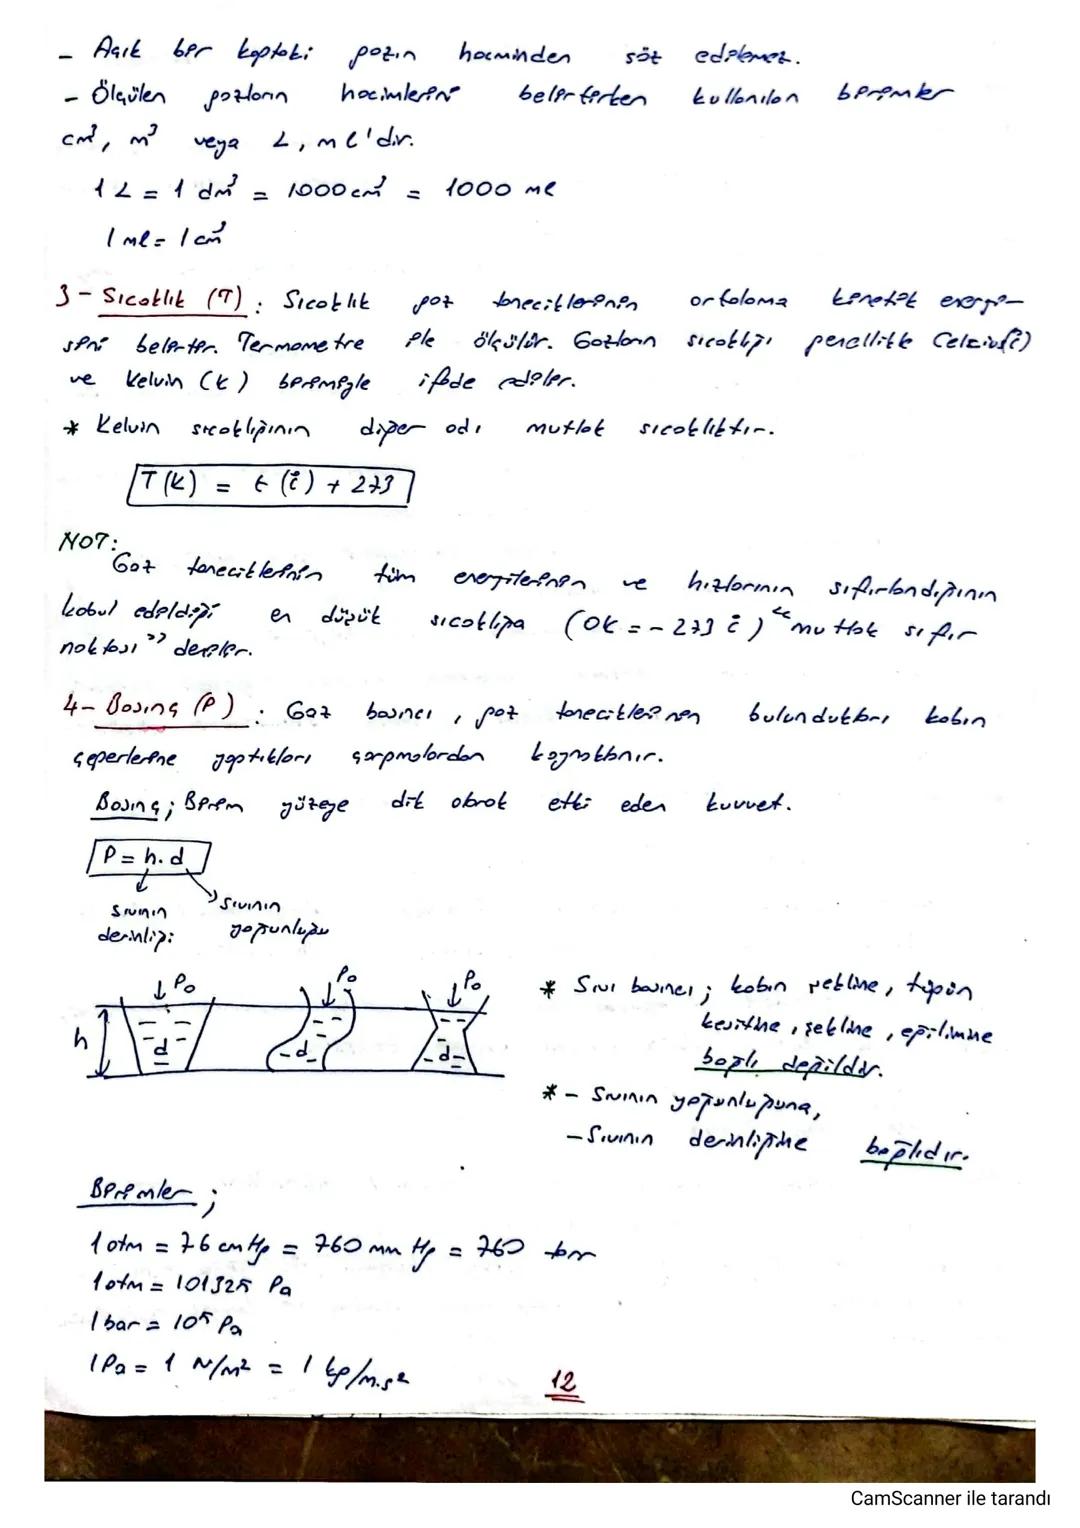 - Açık bir kaptaki gazın hacminden söz edilemez.
- Ölçülen gazların hacimlerini belirtirken kullanılan birimler
cm³, m³ veya L, ml'dir.
1 L = 1 dm³ = 1000 cm³ = 1000 ml
1 ml = 1 cm³
3- Sıcaklık (T) : Sıcaklık gaz taneciklerinin ortalama kinetik enerji-
sini belirtir. Termometre ile ölçülür. Gazların sıcaklığı genellikle Celcius(°C)
ve Kelvin (K) birimiyle ifade edilir.
* Kelvin sıcaklığının diğer adı mutlak sıcaklıktır.
T(K) = t (°C) + 273
NOT:
Gaz taneciklerinin tüm enerjilerinin ve hızlarının sıfırlandığının
kabul edildiği en düşük sıcaklığa (0K = -273 °C) "mutlak sıfır
noktası" denilir.
4- Basınç (P) : Gaz basıncı, gaz taneciklerinin bulundukları kabın
çeperlerine yaptıkları çarpmalardan kaynaklanır.
Basınç; Birim yüzeye dik olarak etki eden kuvvet.
P = h.d
sıvının derinliği
sıvının yoğunluğu
P₀ P₀ P₀
h d d d
* Sıvı basıncı; kabın şekline, tüpün
kesitine, şekline, eğilimine
bağlı değildir.
* - Sıvının yoğunluğuna,
- Sıvının derinliğine bağlıdır.
Birimler ;
1 atm = 76 cm Hg = 760 mm Hg = 760 torr
1 atm = 101325 Pa
1 bar = 10⁵ Pa
1 Pa = 1 N/m² = 1 kg/m.s²
12
CamScanner ile tarandı